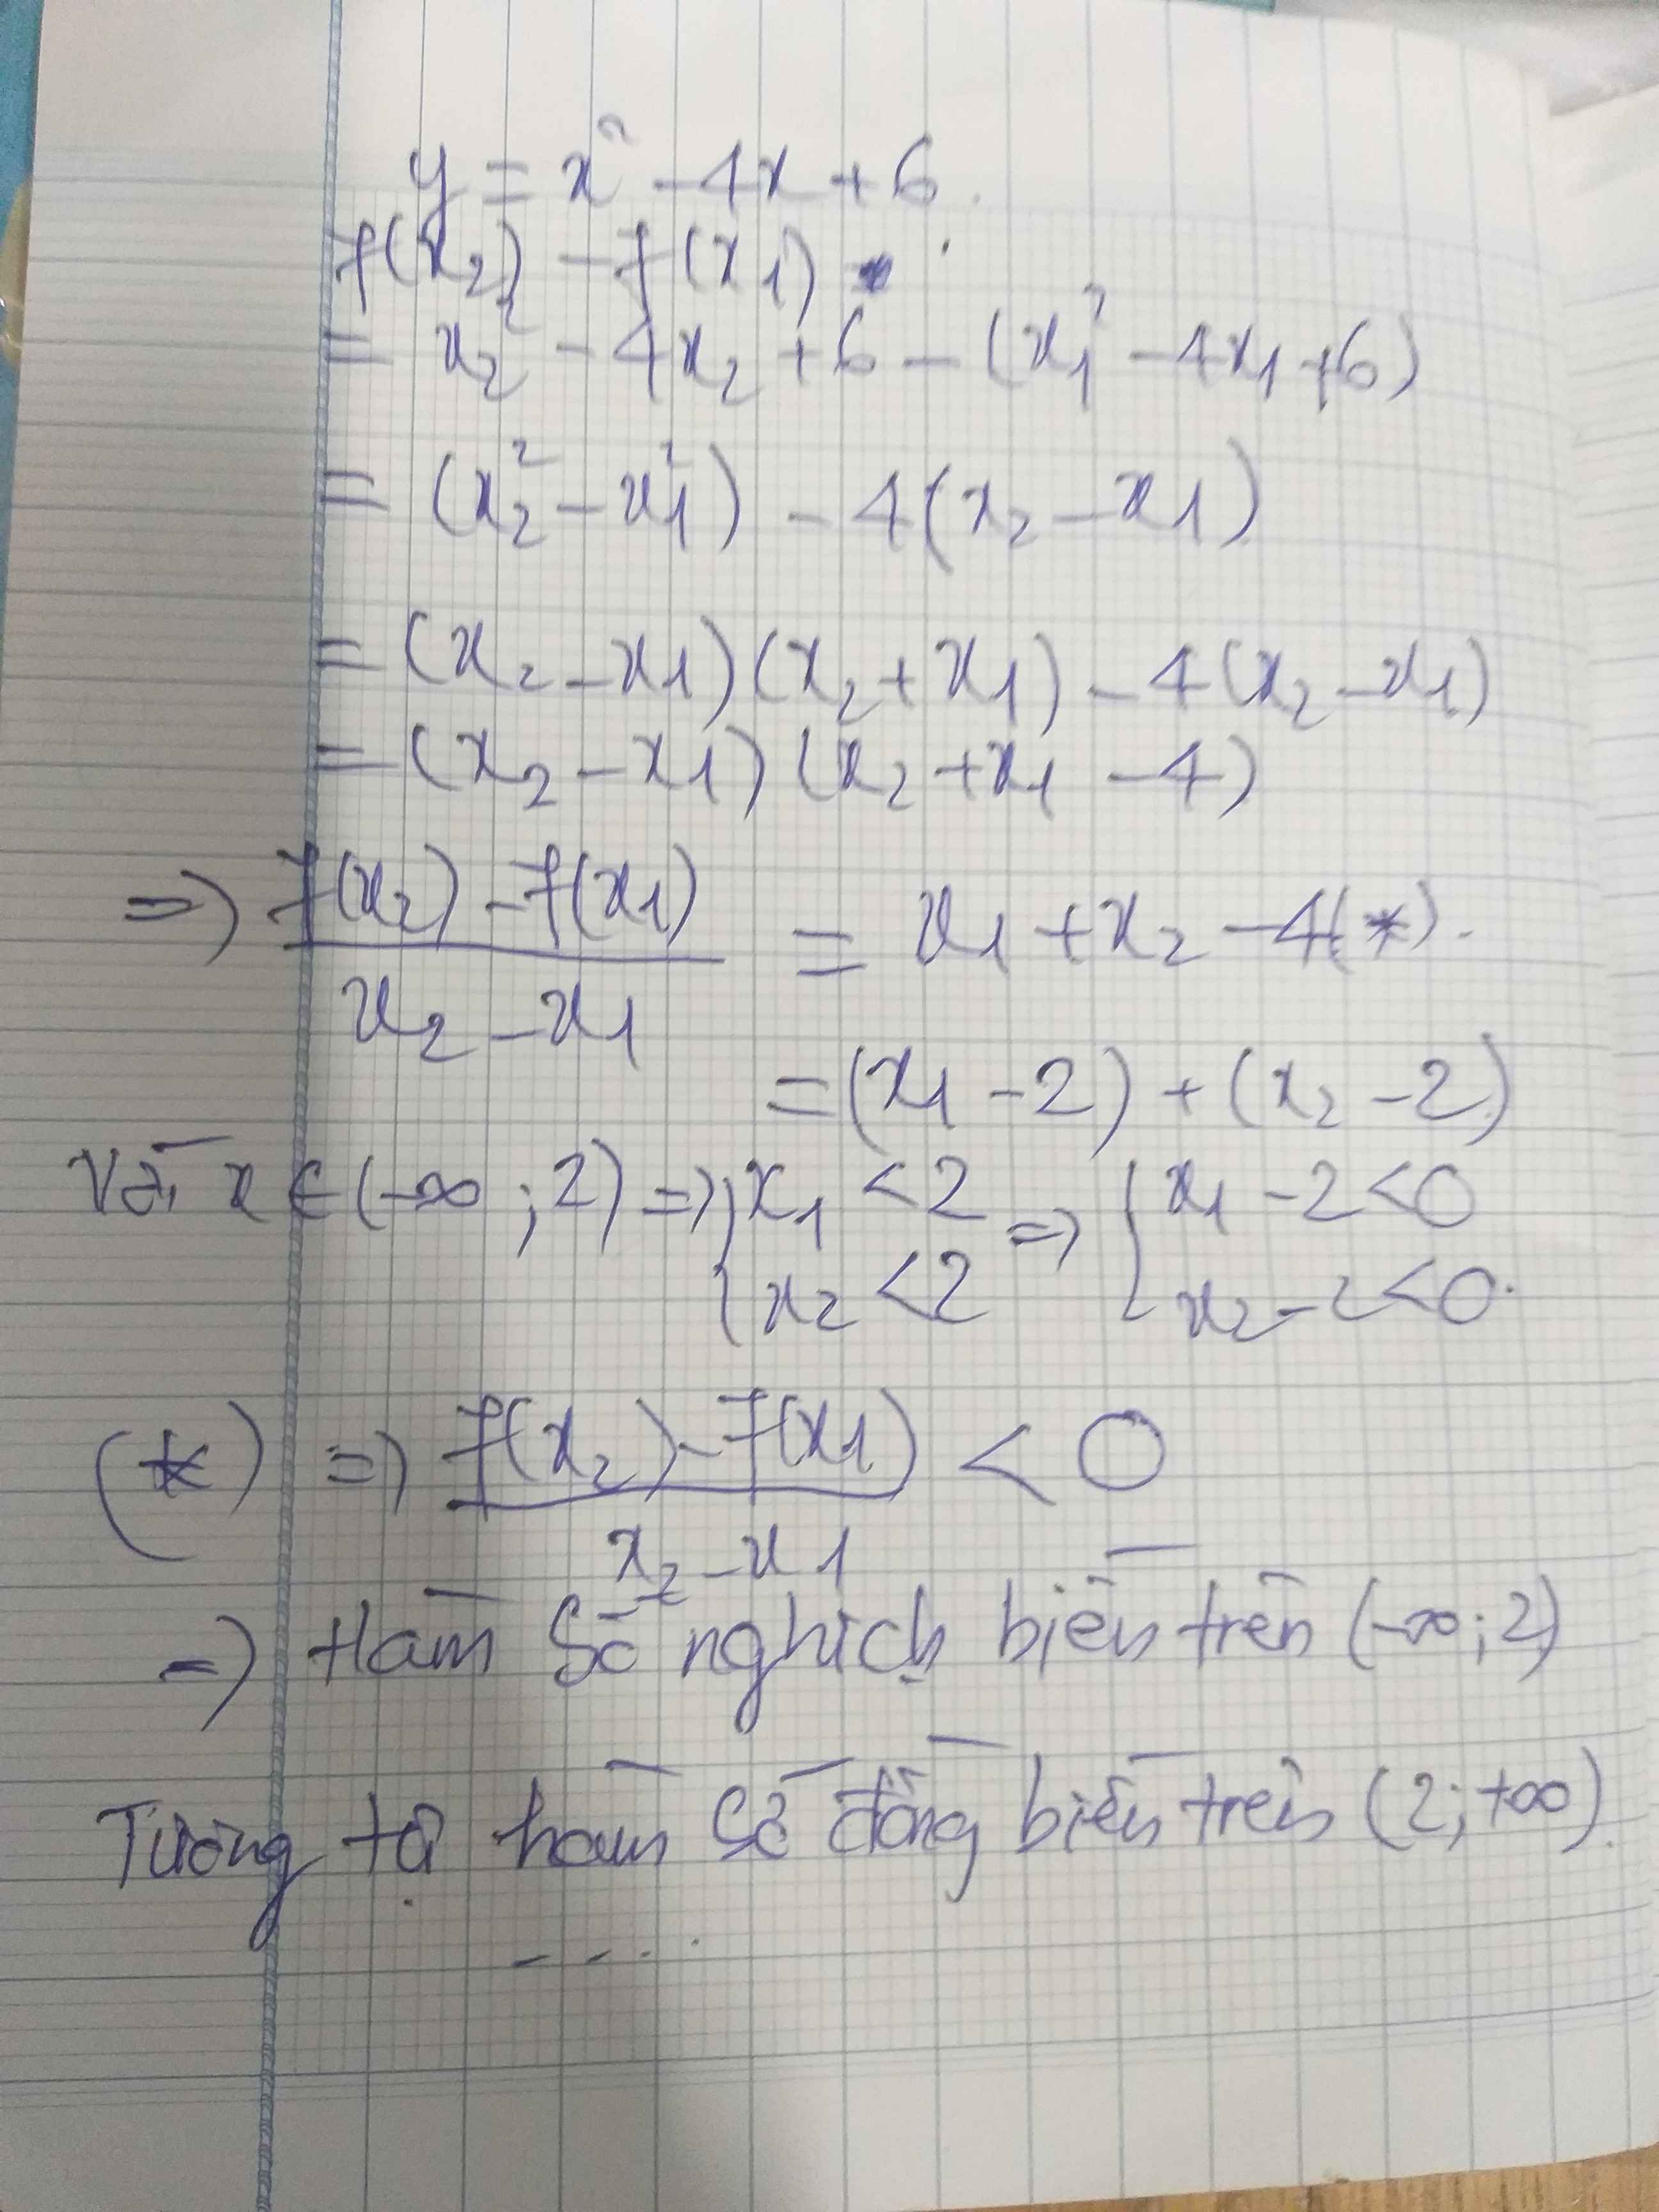 y = x² - 4x + 6.
f(x₂) - f(x₁)
= x₂² - 4x₂ + 6 - (x₁² - 4x₁ + 6)
= (x₂² - x₁²) - 4(x₂ - x₁)
= (x₂ - x₁)(x₂ + x₁) - 4(x₂ - x₁)
= (x₂ - x₁)(x₂ + x₁ - 4)
=> f(x₂) - f(x₁) / x₂ - x₁ = x₁ + x₂ - 4 (*).
= (x₁ - 2) + (x₂ - 2)
Với x ∈ (-∞; 2) => { x₁ < 2 => { x₁ - 2 < 0
x₂ < 2 x₂ - 2 < 0.
(*) => f(x₂) - f(x₁) / x₂ - x₁ < 0
=> Hàm số nghịch biến trên (-∞; 2)
Tương tự hàm số đồng biến trên (2; +∞).
.....